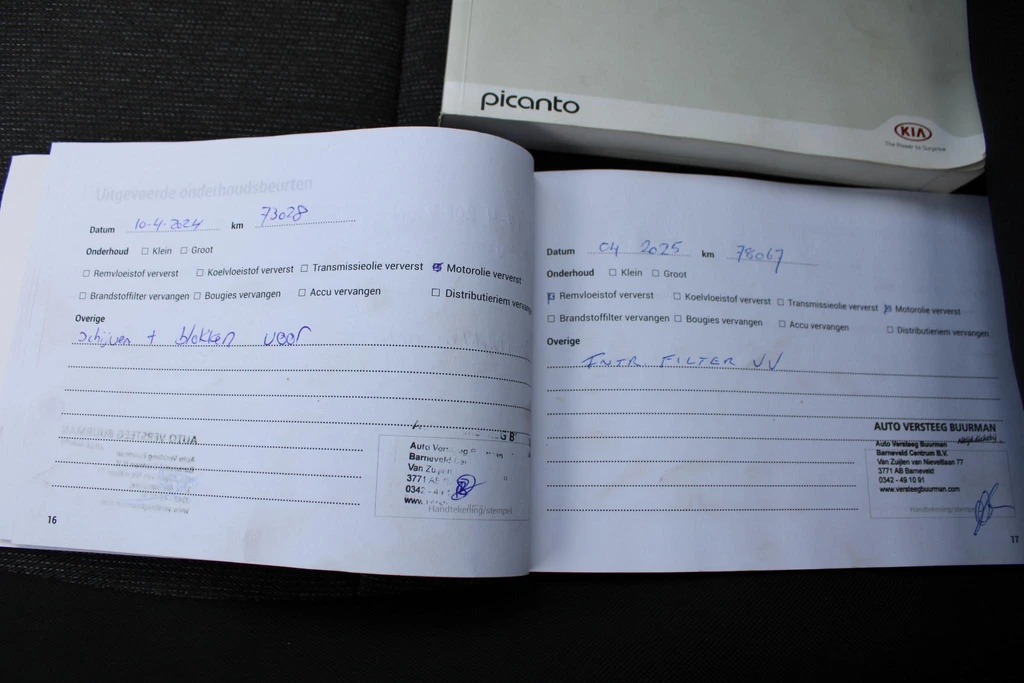 picanto
KIA
The Power to Surprise
Uitgevoerde onderhoudsbeurten
Datum 10-4-2024 km 73028
Onderhoud ☐ Klein ☐ Groot
☐ Remvloeistof ververst ☐ Koelvloeistof ververst ☐ Transmissieolie ververst ☒ Motorolie ververst
☐ Brandstoffilter vervangen ☐ Bougies vervangen ☐ Accu vervangen ☐ Distributieriem
Overige
Schijven + blokken voor
Auto
Barneveld
Van
3771 AB
0342 - 49
www.
Handtekening/stempel
16
Datum 04 2025 km 78067
Onderhoud ☐ Klein ☐ Groot
☒ Remvloeistof ververst ☐ Koelvloeistof ververst ☐ Transmissieolie ververst ☒ Motorolie ververst
☐ Brandstoffilter vervangen ☐ Bougies vervangen ☐ Accu vervangen ☐ Distributieriem vervangen
Overige
INTR. FILTER VV
AUTO VERSTEEG BUURMAN
altijd dichtbij
Auto Versteeg Buurman
Barneveld Centrum B.V.
Van Zuijlen van Nieveltlaan 77
3771 AB Barneveld
0342 - 49 10 91
www.versteegbuurman.com
Handtekening/stempel
17